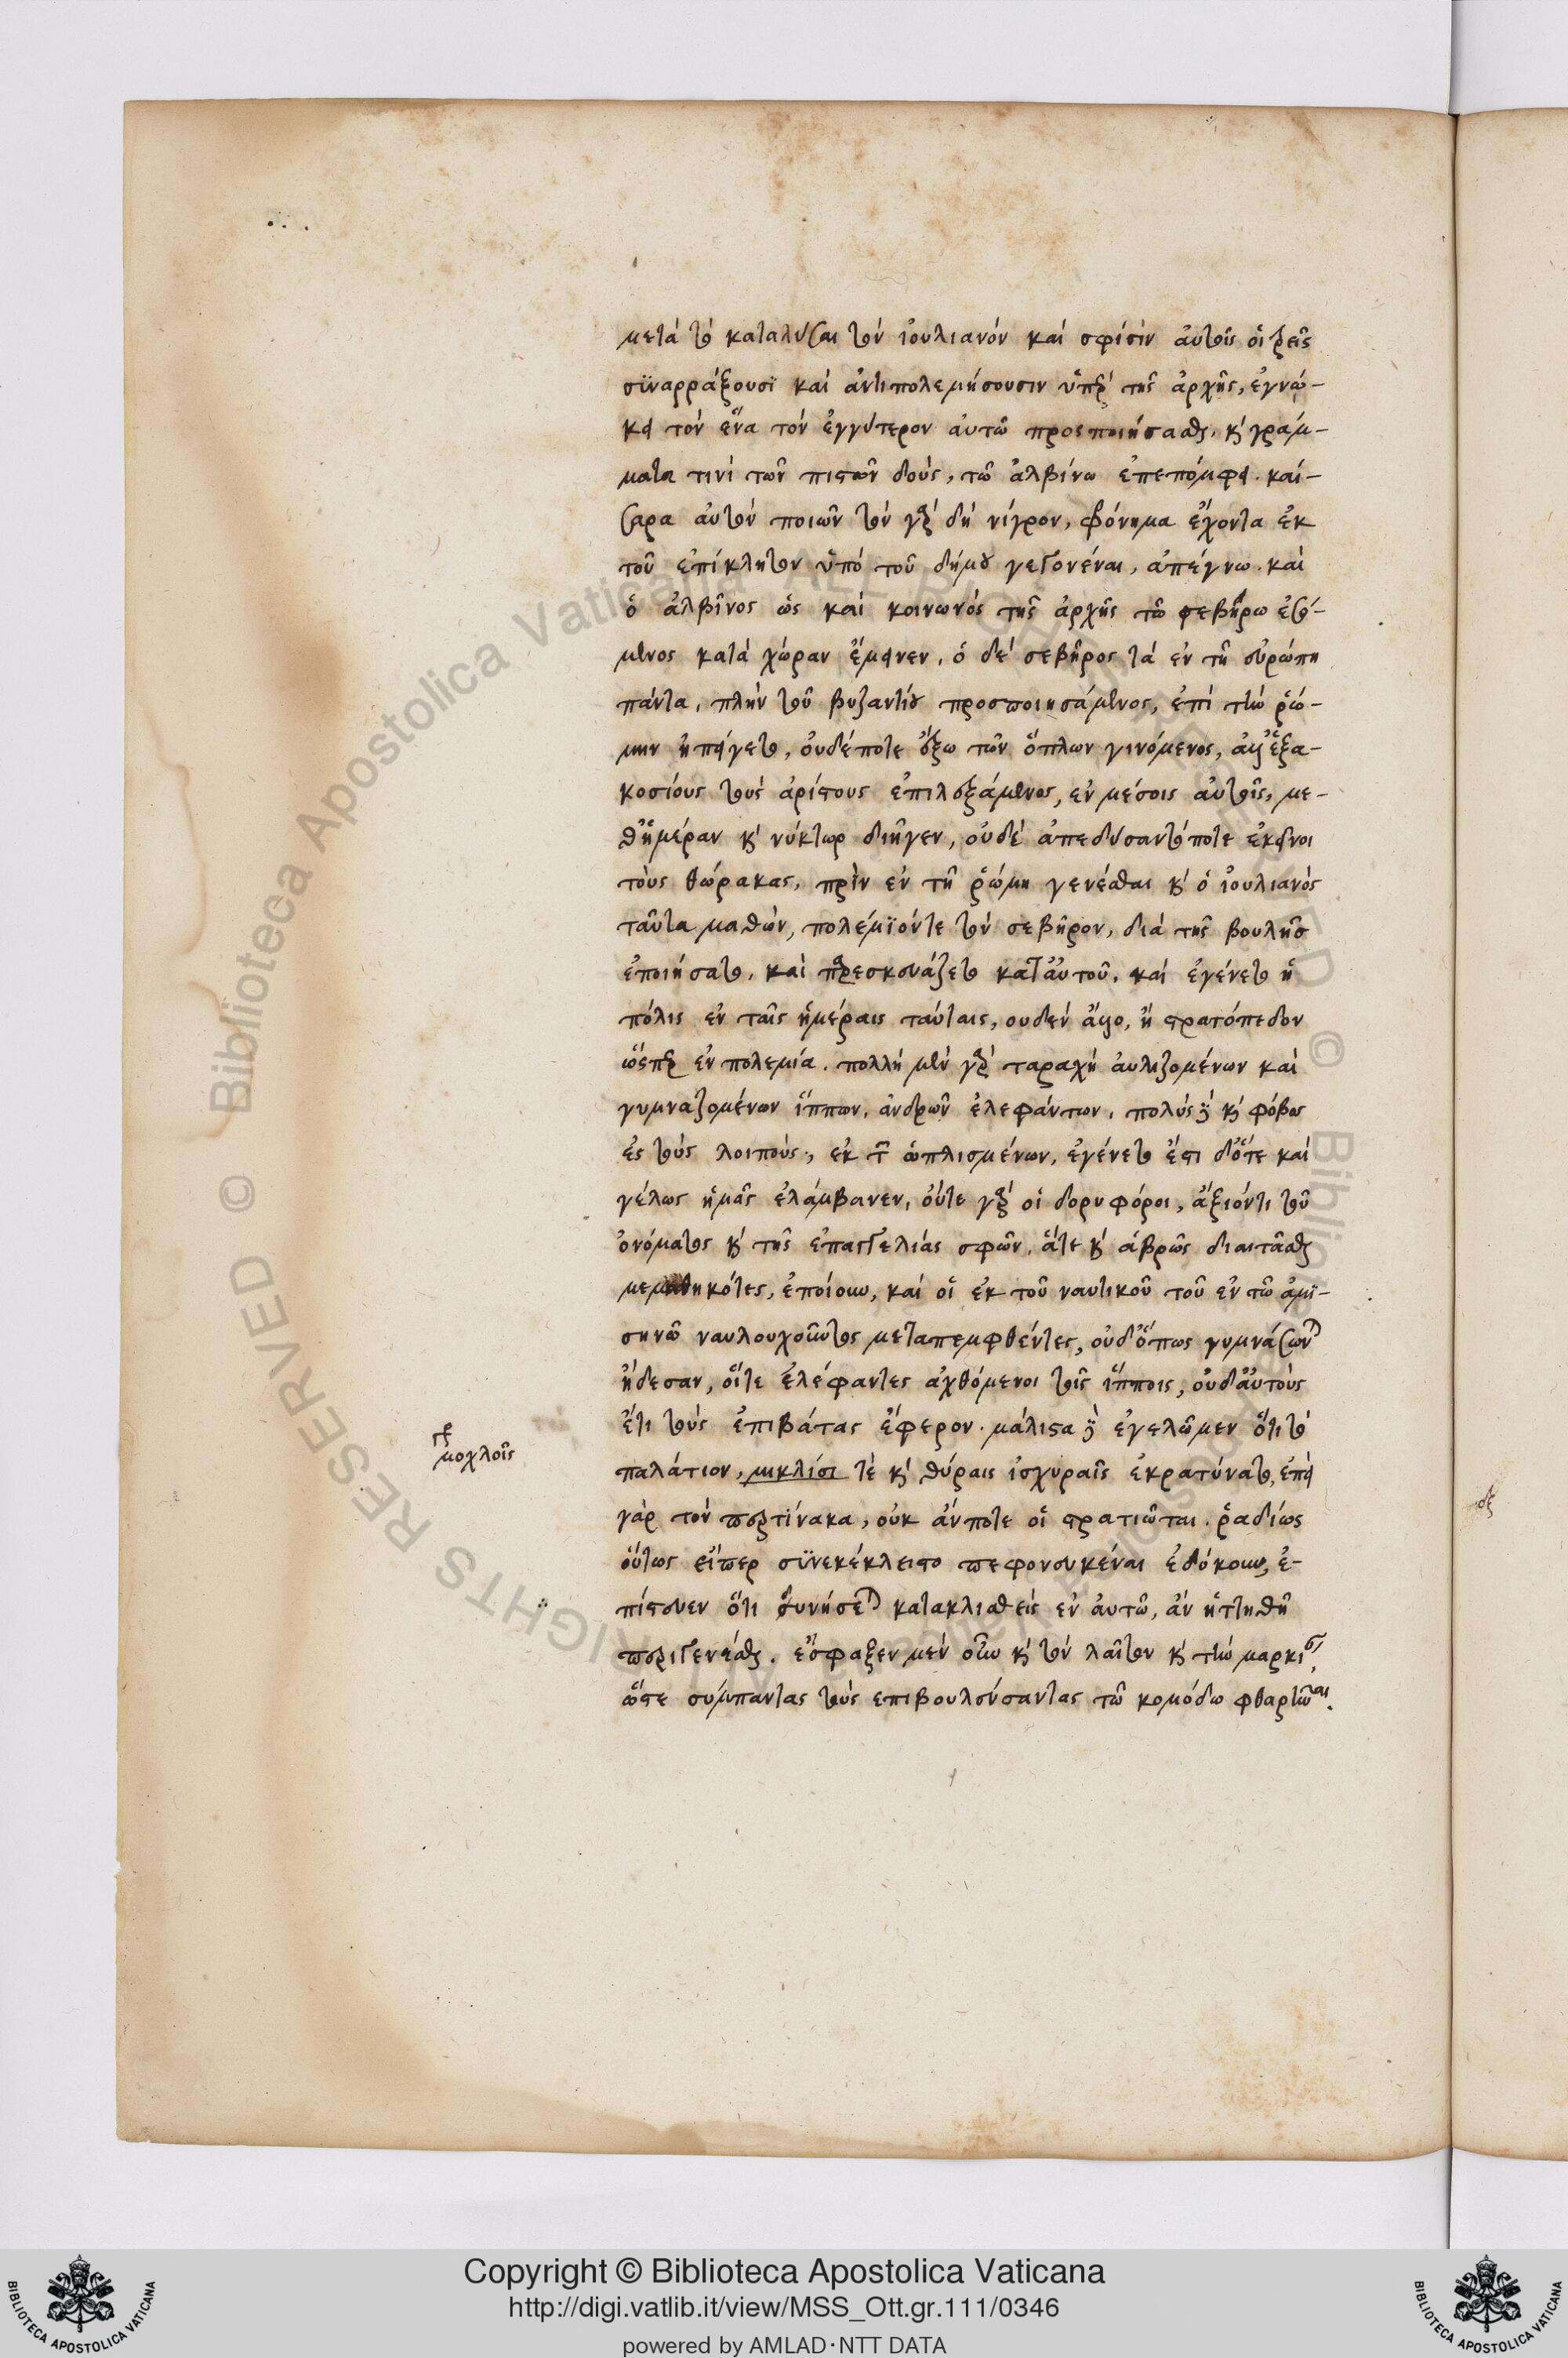 μετὰ τὸ καταλῦσαι τὸν ἰουλιανὸν καὶ σφίσιν αὐτοῖς οἱ τρεῖς
σϋναρράξουσϊ καὶ ἀντιπολεμήσουσιν ὑπὲρ τῆς ἀρχῆς, ἐγνώ-
κει τὸν ἕνα τὸν ἐγγύτερον αὐτῶ προσποιήσασθαι, κ̀ γράμ-
ματα τινὶ τῶν πιστῶν δοὺς, τῶ ἀλβίνω ἐπεπόμφει. καί-
σαρα αὐτὸν ποιῶν τὸν γὰρ δὴ νίγρον, φρόνημα ἔχοντα ἐκ
τοῦ ἐπίκλητον ὑπὸ τοῦ δήμου γεγονέναι, ἀπέγνω. καὶ
ὁ ἀλβῖνος ὡς καὶ κοινωνὸς τῆς ἀρχῆς τῶ σεβήρω ἐσό-
μενος κατὰ χώραν ἔμεινεν, ὁ δὲ σεβῆρος τὰ ἐν τῆ εὐρώπη
πάντα, πλὴν τοῦ βυζαντίου προσποιησάμενος, ἐπὶ τὴν ῥώ-
μην ἠπείγετο, οὐδέποτε ἔξω τῶν ὅπλων γινόμενος, ἀλλ' ἑξα-
κοσίους τοὺς ἀρίστους ἐπιλεξάμενος, ἐν μέσοις αὐτοῖς, με-
θ' ἡμέραν κ̀ νύκτωρ διῆγεν, οὐδὲ ἀπεδύσαντό ποτε ἐκεῖνοι
τοὺς θώρακας, πρὶν ἐν τῆ ῥώμη γενέσθαι κ̀ ὁ ἰουλιανὸς
ταῦτα μαθὼν, πολέμϊόν τε τὸν σεβῆρον, διὰ τῆς βουλῆς
ἐποιήσατο, καὶ παρεσκευάζετο κατ' αὐτοῦ, καὶ ἐγένετο ἡ
πόλις ἐν ταῖς ἡμέραις ταύταις, ουδὲν ἄλλο, ἢ στρατόπεδον
ὥσπερ ἐν πολεμία. πολλὴ μὲν γὰρ ταραχὴ αὐλιζομένων καὶ
γυμναζομένων ἵππων, ἀνδρῶν ἐλεφάντων, πολὺς δὲ κ̀ φόβος
ἐς τοὺς λοιποὺς, ἐκ τῶν ὡπλισμένων, ἐγένετο ἔστι δ' ὅτε καὶ
γέλως ἡμᾶς ἐλάμβανεν, οὔτε γὰρ οἱ δορυφόροι, ἄξιόν τι τοῦ
ὀνόματος κ̀ τῆς ἐπαγγελίας σφῶν, ἅτε κ̀ ἁβρῶς διαιτᾶσθαι
μεμαθηκότες, ἐποίουν, καὶ οἱ ἐκ τοῦ ναυτικοῦ τοῦ ἐν τῶ ἀμϊ-
σηνῶ ναυλουχοῦντος μεταπεμφθέντες, οὐδ' ὅπως γυμνάσων
ἤδεσαν, οἵ τε ἐλέφαντες ἀχθόμενοι τοῖς ἵπποις, οὐδ' αὐτοὺς
ἔτι τοὺς ἐπιβάτας ἔφερον. μάλιστα δὲ ἐγελῶμεν ὅτι τὸ
παλάτιον, μικλίσι τὲ κ̀ θύραις ἰσχυραῖς ἐκρατύνατο, ἐπεὶ
γὰρ τὸν περτίνακα, οὐκ ἄν ποτε οἱ στρατιῶται. ῥαδίως
οὕτως εἴπερ σϋνεκέκλειστο πεφονευκέναι ἐδόκουν, ἐ-
πίστευεν ὅτι δυνήσεται κατακλισθεὶς ἐν αὐτῶ, ἂν ἡττηθῆ
περιγενέσθαι. ἔσφαξεν μὲν οὖν κ̀ τὸν λαῖτον κ̀ τὴν μαρκί
ὥστε σύμπαντας τοὺς επιβουλεύσαντας τῶ κομόδω φθαρῆναι.
γρ
μοχλοῖς
Copyright © Biblioteca Apostolica Vaticana
http://digi.vatlib.it/view/MSS_Ott.gr.111/0346
powered by AMLAD·NTT DATA
BIBLIOTECA APOSTOLICA VATICANA
BIBLIOTECA APOSTOLICA VATICANA